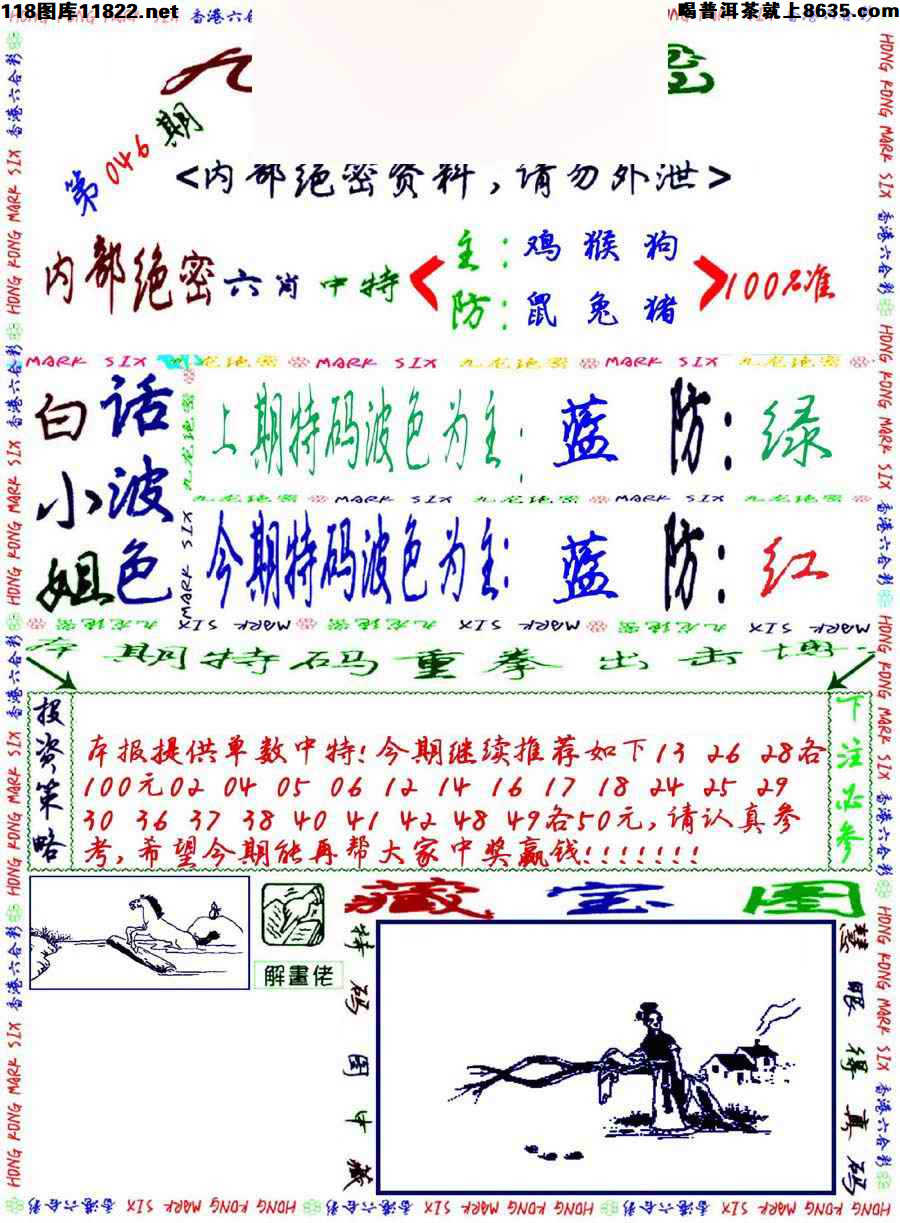 118图库11822.net
喝普洱茶就上8635.com
香港六合彩 HONG KONG MARK SIX
九
密
第046期
<内部绝密资料,请勿外泄>
内部绝密六肖中特
主:鸡猴狗
防:鼠兔猪
100%准
MARK SIX 九龙绝密 MARK SIX 九龙绝密 MARK SIX 九龙绝密
白小姐
话波色
上期特码波色为主:蓝 防:绿
九龙绝密 MARK SIX 九龙绝密 MARK SIX 九龙绝密
今期特码波色为主:蓝 防:红
MARK SIX 九龙绝密 MARK SIX 九龙绝密 MARK SIX 九龙绝密
本期特码重拳出击博
投资策略
本报提供单数中特!今期继续推荐如下13 26 28各
100元02 04 05 06 12 14 16 17 18 24 25 29
30 36 37 38 40 41 42 48 49各50元,请认真参
考,希望今期能再帮大家中奖赢钱!!!!!!!
下注必参
解畫佬
藏宝图
特码图中藏
慧眼得真码
HONG KONG MARK SIX 香港六合彩